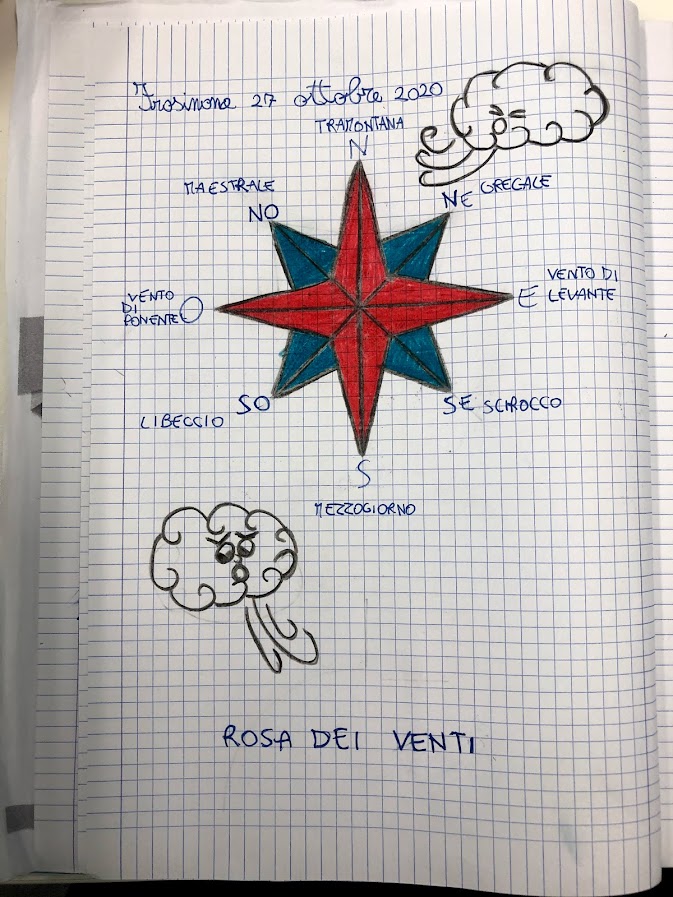 Frosinone 27 ottobre 2020
TRAMONTANA
N
MAESTRALE
NO
NE GREGALE
VENTO
DI
PONENTE O
E VENTO DI
LEVANTE
SO
LIBECCIO
SE SCIROCCO
S
MEZZOGIORNO
ROSA DEI VENTI